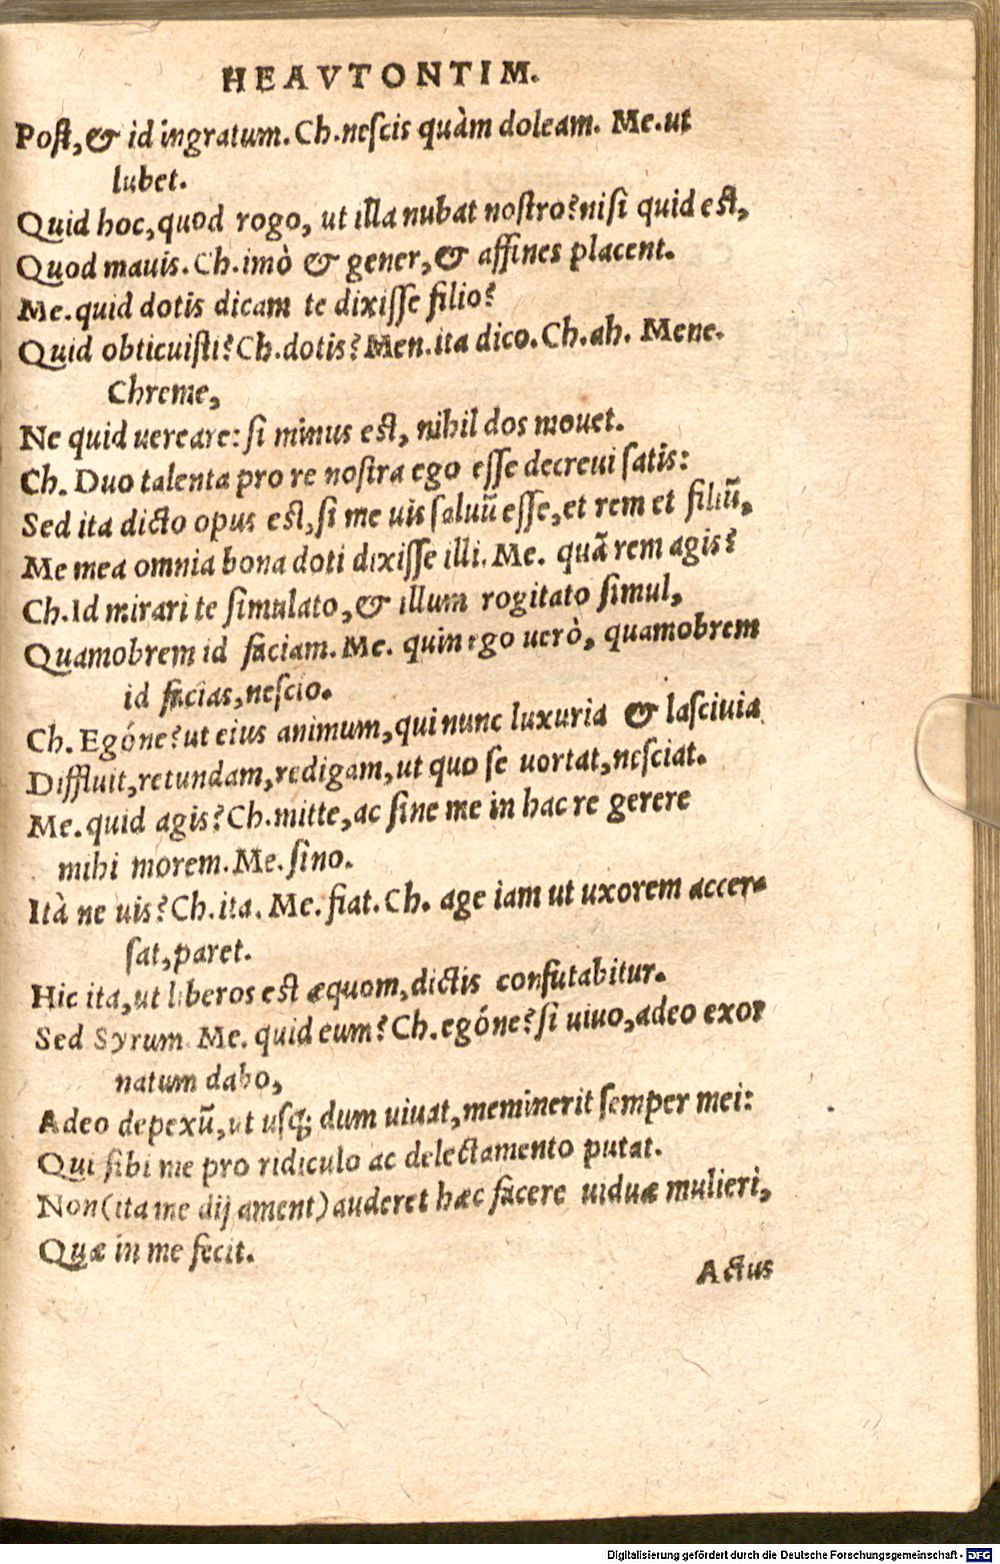 HEAVTONTIM.
Post, & id ingratum. Ch. nescis quàm doleam. Me. ut
lubet.
Quid hoc, quod rogo, ut illa nubat nostro? nisi quid est,
Quod mauis. Ch. imò & gener, & affines placent.
Me. quid dotis dicam te dixisse filio?
Quid obticuisti? Ch. dotis? Men. ita dico. Ch. ah. Mene.
Chreme,
Ne quid uereare: si minus est, nihil dos mouet.
Ch. Duo talenta pro re nostra ego esse decreui satis:
Sed ita dicto opus est, si me uis saluũ esse, et rem et filiũ,
Me mea omnia bona doti dixisse illi. Me. quã rem agis?
Ch. Id mirari te simulato, & illum rogitato simul,
Quamobrem id faciam. Me. quin ego uerò, quamobrem
id facias, nescio.
Ch. Egóne? ut eius animum, qui nunc luxuria & lasciuia
Diffluit, retundam, redigam, ut quo se uortat, nesciat.
Me. quid agis? Ch. mitte, ac sine me in hac re gerere
mihi morem. Me. sino.
Ità ne uis? Ch. ita. Me. fiat. Ch. age iam ut uxorem accer-
sat, paret.
Hic ita, ut liberos est æquom, dictis confutabitur.
Sed Syrum Me. quid eum? Ch. egóne? si uiuo, adeo exor
natum dabo,
Adeo depexũ, ut usq; dum uiuat, meminerit semper mei:
Qui sibi me pro ridiculo ac delectamento putat.
Non (ita me dij ament) auderet hæc facere uiduæ mulieri,
Quæ in me fecit.
Actus
Digitalisierung gefördert durch die Deutsche Forschungsgemeinschaft - DFG